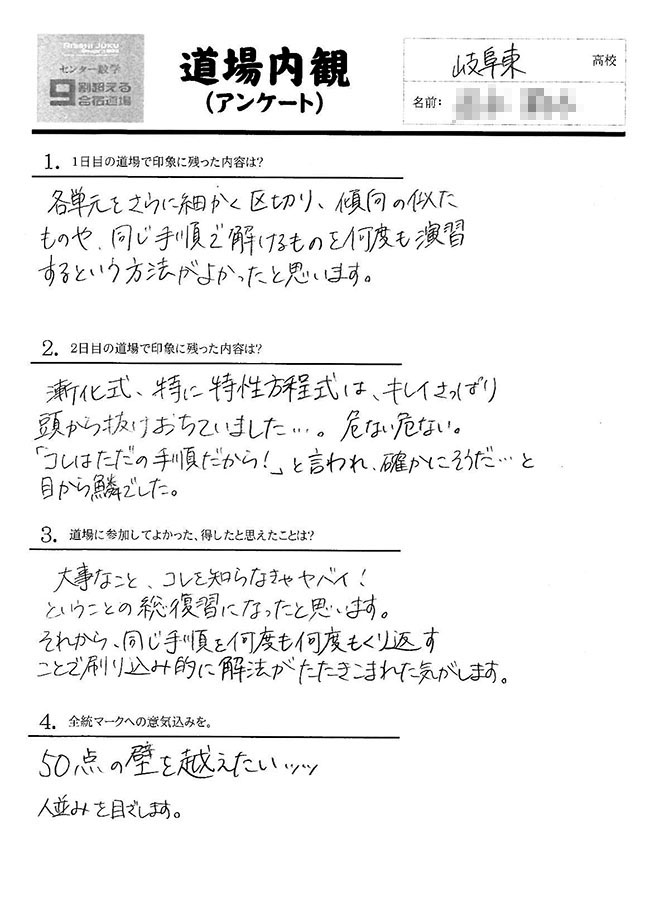 RISSHI JUKU
センター数学
9割超える
合宿道場
道場内観
(アンケート)
岐阜東 高校
名前:
1. 1日目の道場で印象に残った内容は?
各単元をさらに細かく区切り、傾向の似た
ものや、同じ手順で解けるものを何度も演習
するという方法がよかったと思います。
2. 2日目の道場で印象に残った内容は?
漸化式、特に特性方程式は、キレイさっぱり
頭から抜けおちていました…。危ない危ない。
「コレはただの手順だから!」と言われ、確かにそうだ…と
目から鱗でした。
3. 道場に参加してよかった、得したと思えたことは?
大事なこと、コレを知らなきゃヤバイ!
ということの総復習になったと思います。
それから、同じ手順を何度も何度もくり返す
ことで刷り込み的に解法がたたきこまれた気がします。
4. 全統マークへの意気込みを。
50点の壁を越えたいッッ
人並みを目ざします。